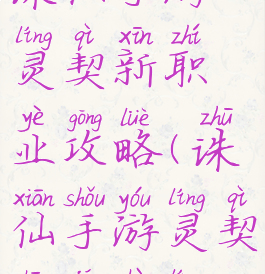 líng qì xīn zhí
灵契新职
yè gōng lüè zhū
业攻略(诛
xiān shǒu yóu líng qì
仙手游灵契